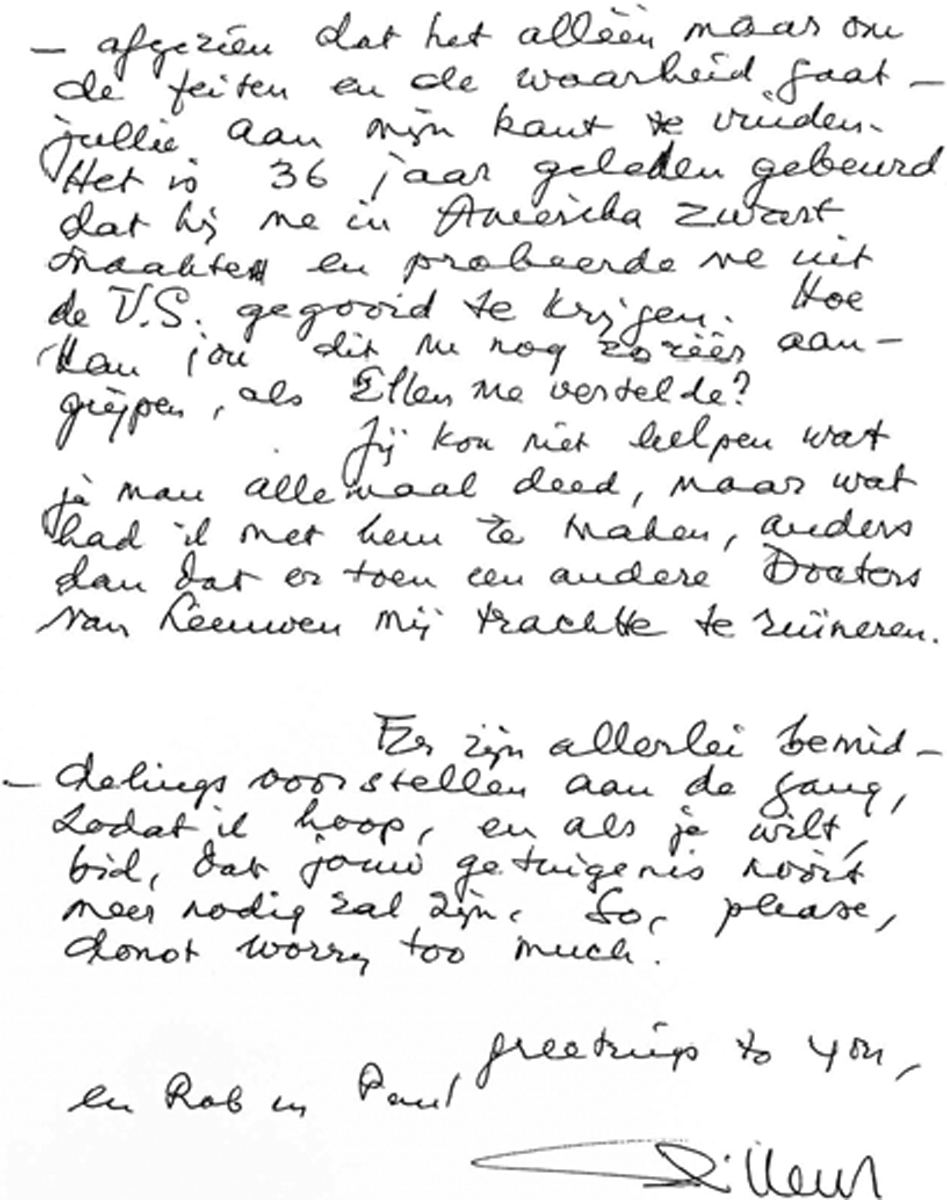 - afgezien dat het alléén maar om
de feiten en de waarheid gaat -
jullie aan mijn kant te vinden.
Het is 36 jaar geleden gebeurd
dat hij me in Amerika zwart
maakte en probeerde me uit
de V.S. gegooid te krijgen. Hoe
kan jou dit nu nog zozéér aan-
grijpen, als Ellen me vertelde?
Jij kon niet helpen wat
je man allemaal deed, maar wat
had ik met hem te maken, anders
dan dat er toen een andere Doctors
van Leeuwen mij trachtte te ruïneren.
Er zijn allerlei bemid-
- delings voorstellen aan de gang,
zodat ik hoop, en als je wilt,
bid, dat jouw getuigenis nooit
meer nodig zal zijn. So, please,
donot worry too much.
greetings to you,
en Rob en Paul
Willem